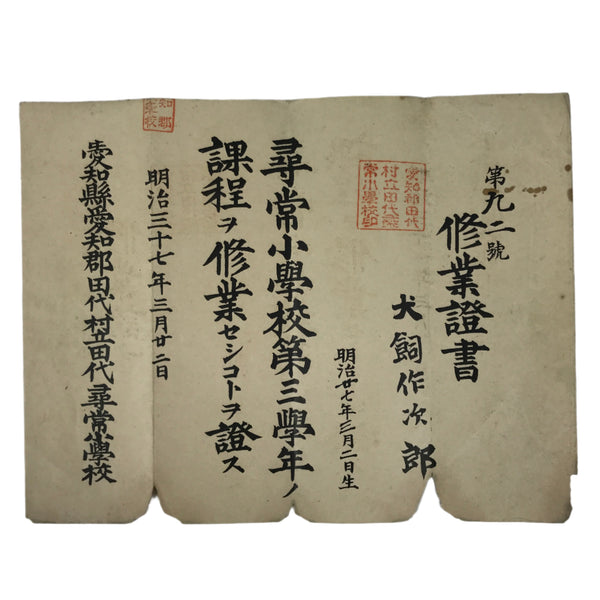 第九二號
修業證書
犬飼作次郎
明治廿七年三月二日生
尋常小學校第三學年ノ
課程ヲ修業セシコトヲ證ス
明治三十七年三月廿二日
愛知縣愛知郡田代村立田代尋常小學校
愛知郡田代
村立田代尋
常小學校印